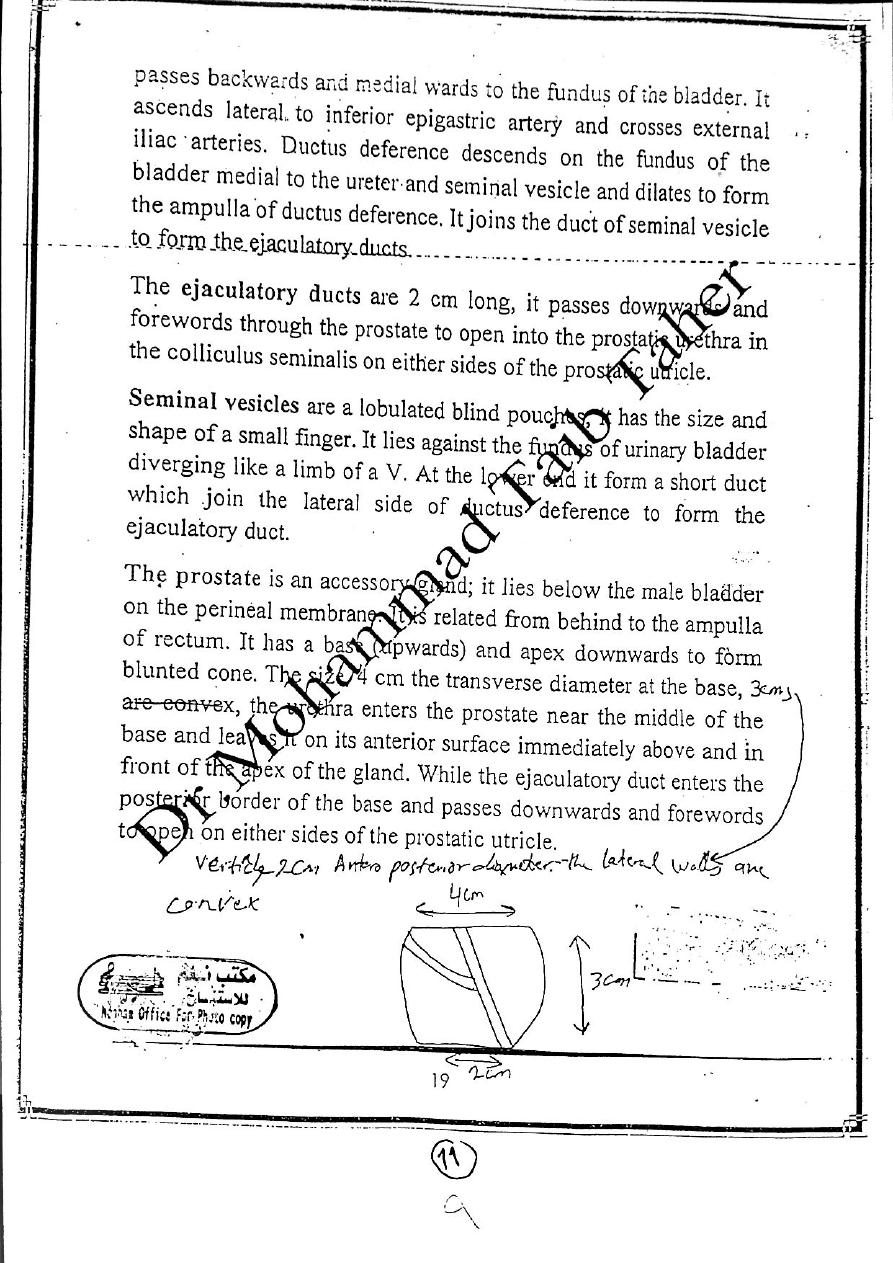 passes backwards and medial wards to the fundus of the bladder. It
ascends lateral to inferior epigastric artery and crosses external
iliac arteries. Ductus deference descends on the fundus of the
bladder medial to the ureter and seminal vesicle and dilates to form
the ampulla of ductus deference. It joins the duct of seminal vesicle
to form the ejaculatory ducts.
The ejaculatory ducts are 2 cm long, it passes downwards and
forewords through the prostate to open into the prostatic urethra in
the colliculus seminalis on either sides of the prostatic utricle.
Seminal vesicles are a lobulated blind pouches, it has the size and
shape of a small finger. It lies against the fundus of urinary bladder
diverging like a limb of a V. At the lower end it form a short duct
which join the lateral side of ductus deference to form the
ejaculatory duct.
The prostate is an accessory gland; it lies below the male bladder
on the perineal membrane. It is related from behind to the ampulla
of rectum. It has a base (upwards) and apex downwards to form
blunted cone. The size 4 cm the transverse diameter at the base, 3cms
are convex, the urethra enters the prostate near the middle of the
base and leaves it on its anterior surface immediately above and in
front of the apex of the gland. While the ejaculatory duct enters the
posterior border of the base and passes downwards and forewords
to open on either sides of the prostatic utricle.
Dr. Mohammad Taib Taher
2cm Antero posterior diameter-the lateral walls are
convex
4cm
3cm
2cm
مكتب
للاستنساخ
Office For Photo copy
19
11
9